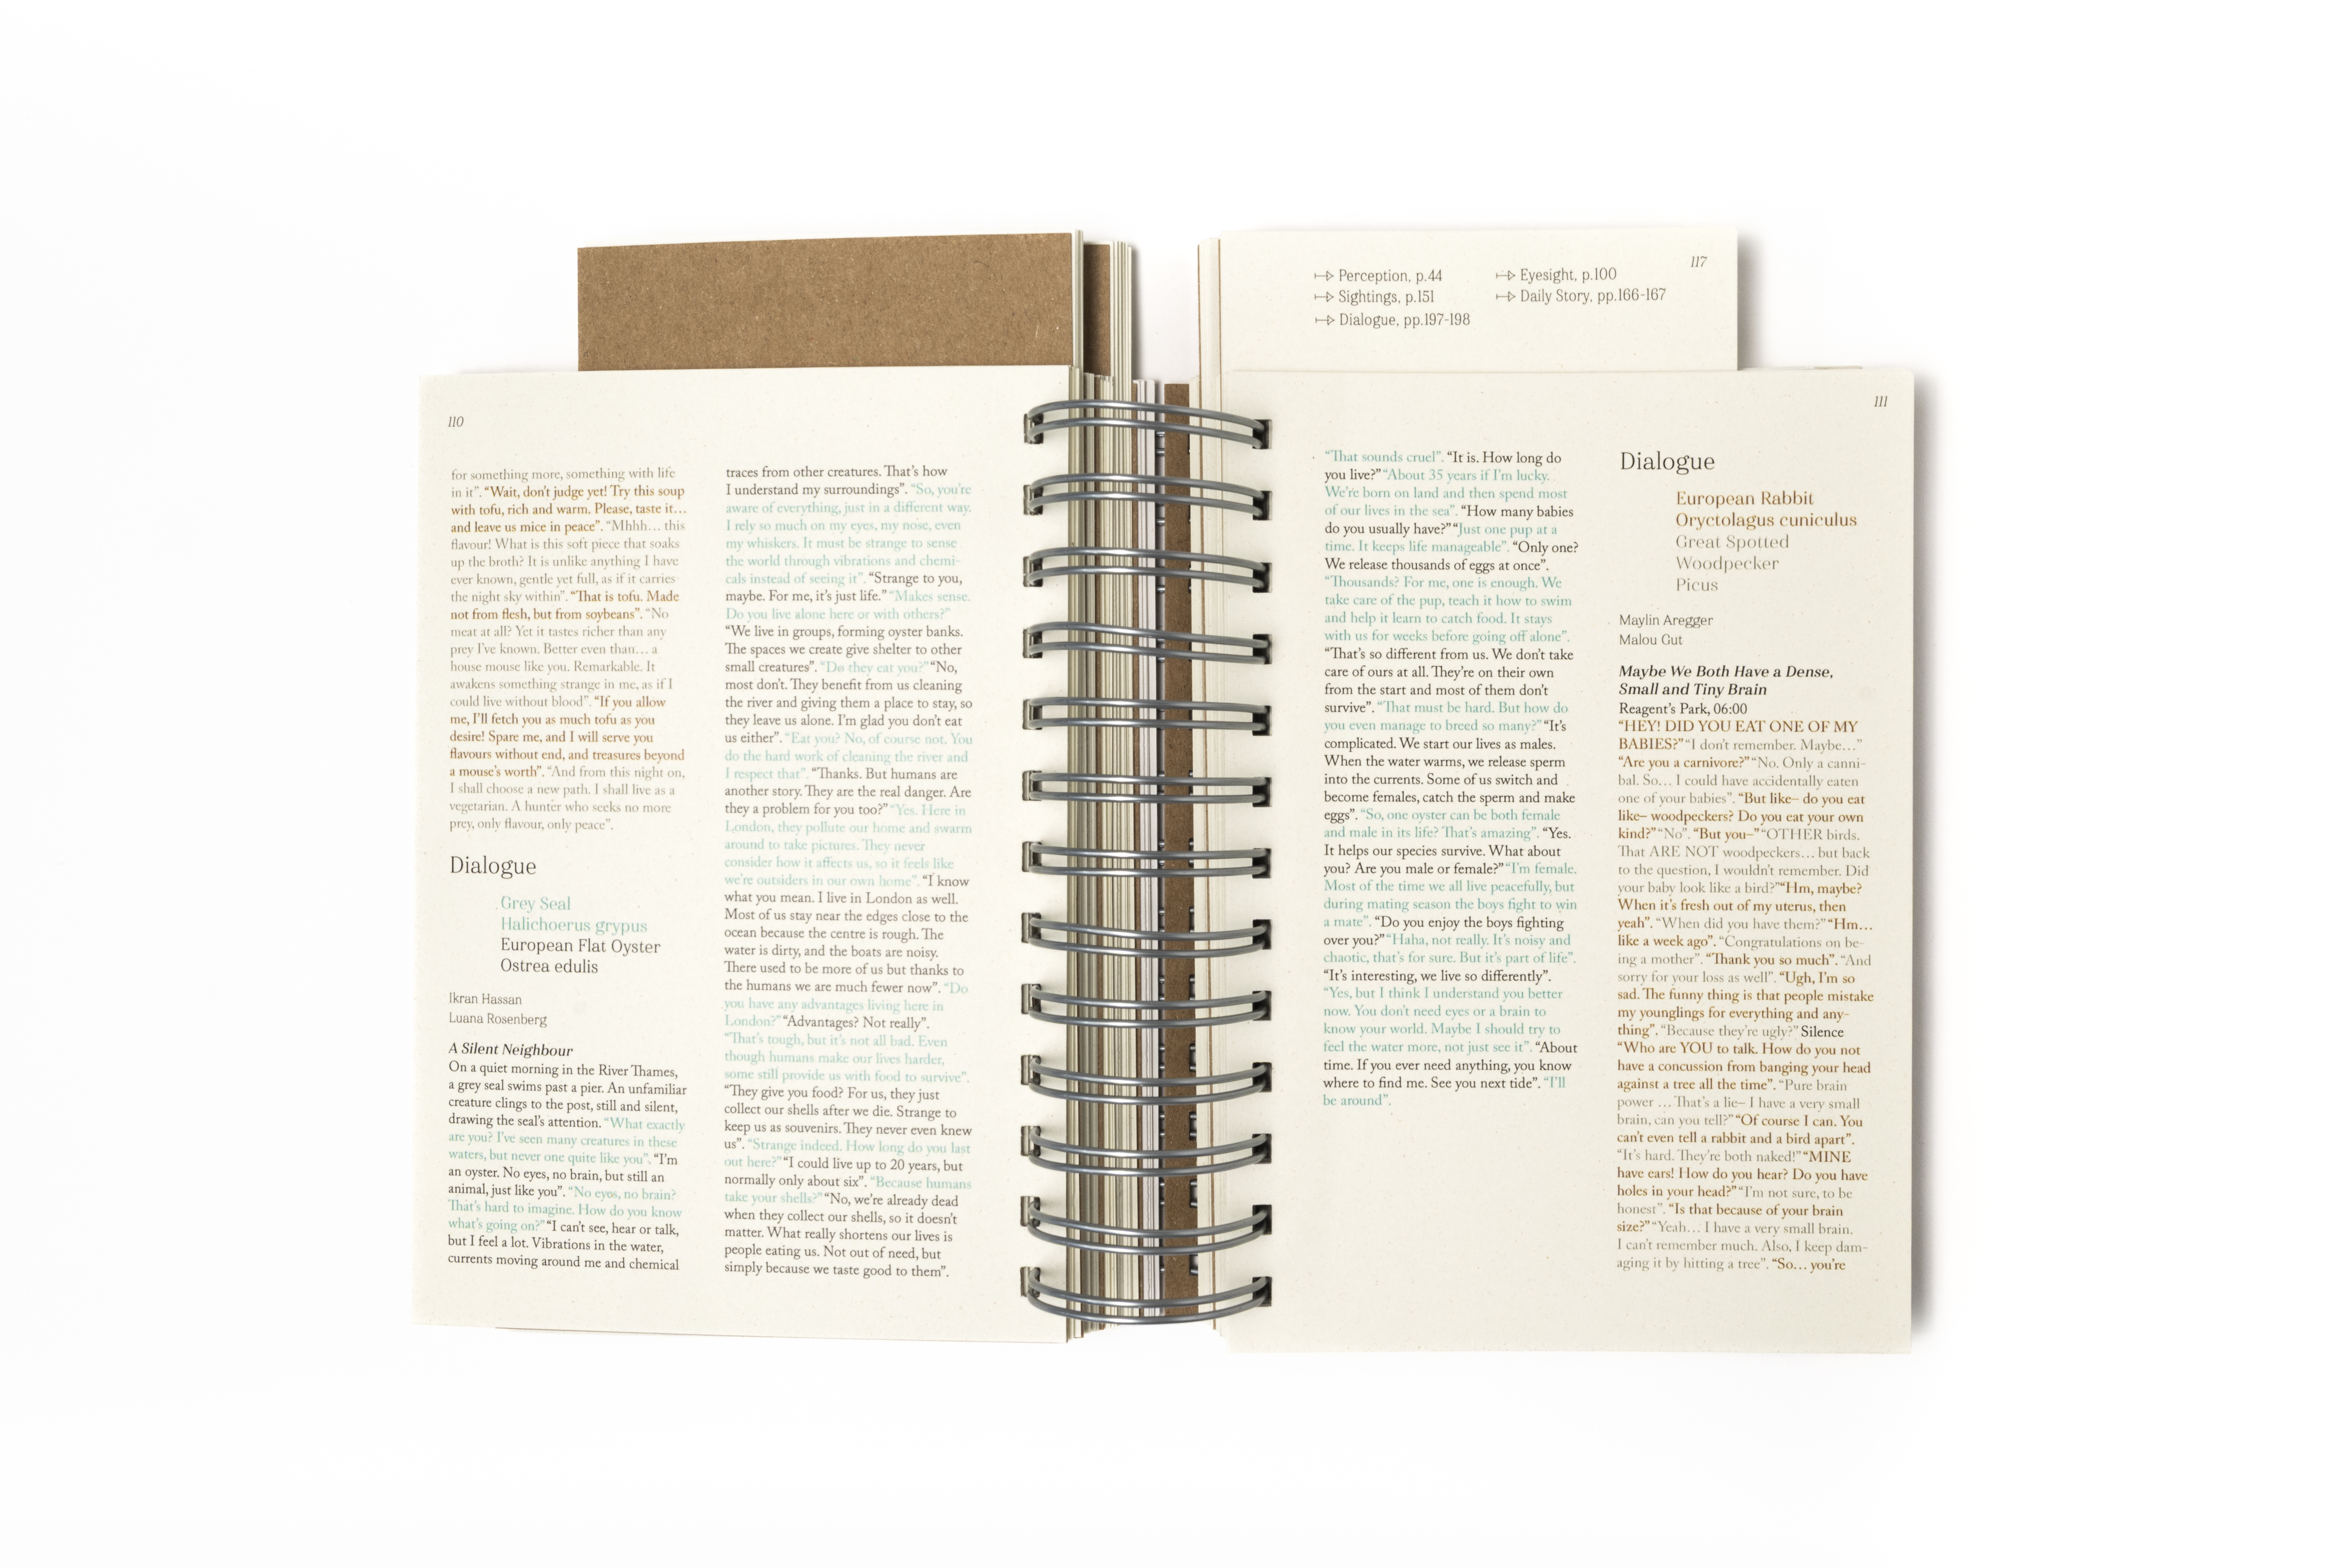 110
for something more, something with life
in it”. “Wait, don’t judge yet! Try this soup
with tofu, rich and warm. Please, taste it…
and leave us mice in peace”. “Mhhh… this
flavour! What is this soft piece that soaks
up the broth? It is unlike anything I have
ever known, gentle yet full, as if it carries
the night sky within”. “That is tofu. Made
not from flesh, but from soybeans”. “No
meat at all? Yet it tastes richer than any
prey I’ve known. Better even than… a
house mouse like you. Remarkable. It
awakens something strange in me, as if I
could live without blood”. “If you allow
me, I’ll fetch you as much tofu as you
desire! Spare me, and I will serve you
flavours without end, and treasures beyond
a mouse’s worth”. “And from this night on,
I shall choose a new path. I shall live as a
vegetarian. A hunter who seeks no more
prey, only flavour, only peace”.
Dialogue
Grey Seal
Halichoerus grypus
European Flat Oyster
Ostrea edulis
Ikran Hassan
Luana Rosenberg
A Silent Neighbour
On a quiet morning in the River Thames,
a grey seal swims past a pier. An unfamiliar
creature clings to the post, still and silent,
drawing the seal’s attention. “What exactly
are you? I’ve seen many creatures in these
waters, but never one quite like you”. “I’m
an oyster. No eyes, no brain, but still an
animal, just like you”. “No eyes, no brain?
That’s hard to imagine. How do you know
what’s going on?” “I can’t see, hear or talk,
but I feel a lot. Vibrations in the water,
currents moving around me and chemical
traces from other creatures. That’s how
I understand my surroundings”. “So, you’re
aware of everything, just in a different way.
I rely so much on my eyes, my nose, even
my whiskers. It must be strange to sense
the world through vibrations and chemi-
cals instead of seeing it”. “Strange to you,
maybe. For me, it’s just life.” “Makes sense.
Do you live alone here or with others?”
“We live in groups, forming oyster banks.
The spaces we create give shelter to other
small creatures”. “Do they eat you?” “No,
most don’t. They benefit from us cleaning
the river and giving them a place to stay, so
they leave us alone. I’m glad you don’t eat
us either”. “Eat you? No, of course not. You
do the hard work of cleaning the river and
I respect that”. “Thanks. But humans are
another story. They are the real danger. Are
they a problem for you too?” “Yes. Here in
London, they pollute our home and swarm
around to take pictures. They never
consider how it affects us, so it feels like
we’re outsiders in our own home”. “I know
what you mean. I live in London as well.
Most of us stay near the edges close to the
ocean because the centre is rough. The
water is dirty, and the boats are noisy.
There used to be more of us but thanks to
the humans we are much fewer now”. “Do
you have any advantages living here in
London?” “Advantages? Not really”.
“That’s tough, but it’s not all bad. Even
though humans make our lives harder,
some still provide us with food to survive”.
“They give you food? For us, they just
collect our shells after we die. Strange to
keep us as souvenirs. They never even knew
us”. “Strange indeed. How long do you last
out here?” “I could live up to 20 years, but
normally only about six”. “Because humans
take your shells?” “No, we’re already dead
when they collect our shells, so it doesn’t
matter. What really shortens our lives is
people eating us. Not out of need, but
simply because we taste good to them”.
117
Perception, p.44
Sightings, p.151
Dialogue, pp.197-198
Eyesight, p.100
Daily Story, pp.166-167
111
“That sounds cruel”. “It is. How long do
you live?” “About 35 years if I’m lucky.
We’re born on land and then spend most
of our lives in the sea”. “How many babies
do you usually have?” “Just one pup at a
time. It keeps life manageable”. “Only one?
We release thousands of eggs at once”.
“Thousands? For me, one is enough. We
take care of the pup, teach it how to swim
and help it learn to catch food. It stays
with us for weeks before going off alone”.
“That’s so different from us. We don’t take
care of ours at all. They’re on their own
from the start and most of them don’t
survive”. “That must be hard. But how do
you even manage to breed so many?” “It’s
complicated. We start our lives as males.
When the water warms, we release sperm
into the currents. Some of us switch and
become females, catch the sperm and make
eggs”. “So, one oyster can be both female
and male in its life? That’s amazing”. “Yes.
It helps our species survive. What about
you? Are you male or female?” “I’m female.
Most of the time we all live peacefully, but
during mating season the boys fight to win
a mate”. “Do you enjoy the boys fighting
over you?” “Haha, not really. It’s noisy and
chaotic, that’s for sure. But it’s part of life”.
“It’s interesting, we live so differently”.
“Yes, but I think I understand you better
now. You don’t need eyes or a brain to
know your world. Maybe I should try to
feel the water more, not just see it”. “About
time. If you ever need anything, you know
where to find me. See you next tide”. “I’ll
be around”.
Dialogue
European Rabbit
Oryctolagus cuniculus
Great Spotted
Woodpecker
Picus
Maylin Aregger
Malou Gut
Maybe We Both Have a Dense,
Small and Tiny Brain
Reagent’s Park, 06:00
“HEY! DID YOU EAT ONE OF MY
BABIES?” “I don’t remember. Maybe…”
“Are you a carnivore?” “No. Only a canni-
bal. So… I could have accidentally eaten
one of your babies”. “But like– do you eat
like– woodpeckers? Do you eat your own
kind?” “No”. “But you–” “OTHER birds.
That ARE NOT woodpeckers… but back
to the question, I wouldn’t remember. Did
your baby look like a bird?” “Hm, maybe?
When it’s fresh out of my uterus, then
yeah”. “When did you have them?” “Hm…
like a week ago”. “Congratulations on be-
ing a mother”. “Thank you so much”. “And
sorry for your loss as well”. “Ugh, I’m so
sad. The funny thing is that people mistake
my younglings for everything and any-
thing”. “Because they’re ugly?” Silence
“Who are YOU to talk. How do you not
have a concussion from banging your head
against a tree all the time”. “Pure brain
power … That’s a lie– I have a very small
brain, can you tell?” “Of course I can. You
can’t even tell a rabbit and a bird apart”.
“It’s hard. They’re both naked!” “MINE
have ears! How do you hear? Do you have
holes in your head?” “I’m not sure, to be
honest”. “Is that because of your brain
size?” “Yeah… I have a very small brain.
I can’t remember much. Also, I keep dam-
aging it by hitting a tree”. “So… you’re